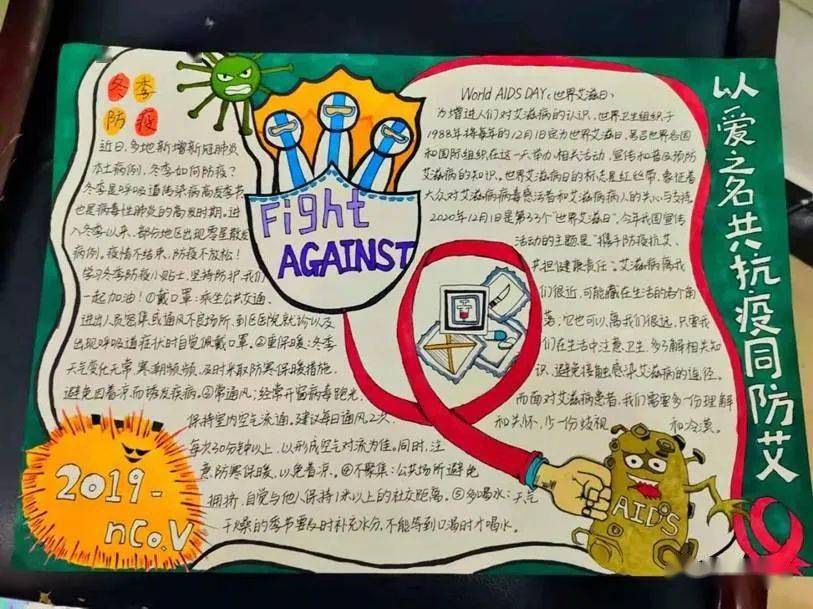 冬季
防疫
近日,多地新增新冠肺炎
本土病例,冬季如何防疫?
冬季是呼吸道传染病高发季节
也是病毒性肺炎的高发时期。进
入冬季以来,部份地区出现零星散发
病例。疫情不结束,防疫不放松!
学习冬季防疫小贴士,坚持防护,我们
一起加油!①戴口罩:乘坐公共交通、
进出人员密集或通风不良场所、到医院就诊以及
出现呼吸道症状时自觉佩戴口罩。②重保暖:冬季
天气变化无常,寒潮频频,及时采取防寒保暖措施,
避免因着凉而诱发疾病。③常通风:经常开窗病毒跑光,
保持室内空气流通。建议每日通风2次,
每次30分钟以上,以形成空气对流为佳。同时,注
意防寒保暖,以免着凉。④不聚集:公共场所避免
拥挤,自觉与他人保持1米以上的社交距离。⑤多喝水:天气
干燥的季节要及时补充水分,不能等到口渴时才喝水。
2019-
nCo.V
Fight
AGAINST
World AIDS DAY《世界艾滋日》
为增进人们对艾滋病的认识,世界卫生组织于
1988年将每年的12月1日定为世界艾滋日,号召世界各国
和国际组织在这一天举办相关活动,宣传和普及预防
艾滋病的知识。世界艾滋病日的标志是红丝带,象征着
大众对艾滋病病毒感染者和艾滋病病人的关心与支持。
2020年12月1日是第33个"世界艾滋日",今年我国宣传
活动的主题是"携手防疫抗艾、
共担健康责任"。艾滋病离我
们很近,可能藏在生活的各个角
落;它也可以离我们很远,只要我
们在生活中注意卫生,多了解相关知
识,避免接触感染艾滋病的途径。
而面对艾滋病患者,我们需要多一份理解
和关怀,少一份歧视和冷漠。
AIDS
以爱之名共抗疫同防艾